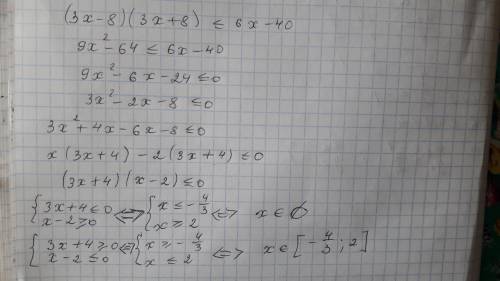 (3x-8)(3x+8) ≤ 6x-40
9x²-64 ≤ 6x-40
9x²-6x-24 ≤ 0
3x²-2x-8 ≤ 0
3x²+4x-6x-8 ≤ 0
x(3x+4)-2(3x+4) ≤ 0
(3x+4)(x-2) ≤ 0
{3x+4 ≤ 0 ⇔ {x ≤ -4/3 ⇔ x ∈ ∅
x-2 ≥ 0 x ≥ 2
{3x+4 ≥ 0 ⇔ {x ≥ -4/3 ⇔ x ∈ [-4/3; 2]
x-2 ≤ 0 x ≤ 2